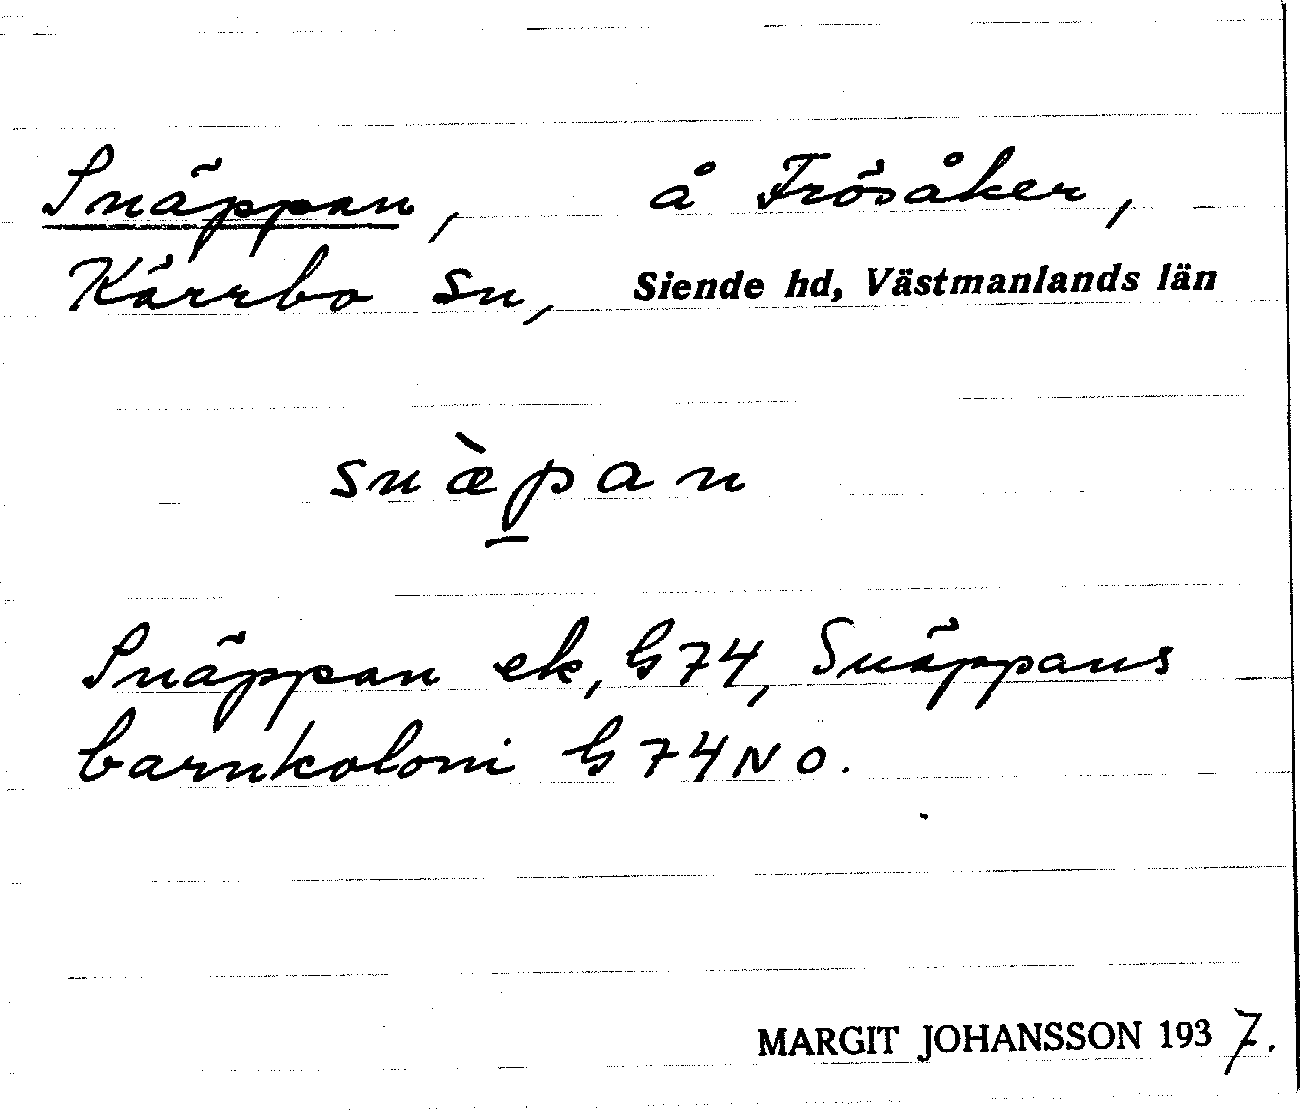 Snäppan, å Frösåker,
Kärrbo sn, Siende hd, Västmanlands län
snæ̀p̠an
Snäppan ek, G74, Snäppans
barnkoloni G74NO.
MARGIT JOHANSSON 1937.